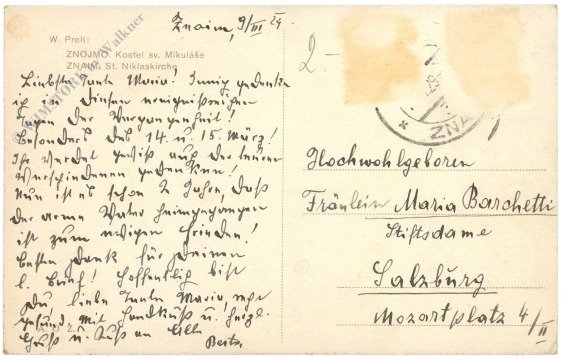 Znaim, 9/III 29.
W. Prell:
ZNOJMO. Kostel sv. Mikuláše
ZNAIM. St. Niklaskirche
Liebste Tante Maria! Innig gedenke
ich in diesen ereignißreichen
Tagen der Vergangenheit!
besonders des 14. u. 15. März!
Ihr werdet gewiß auch der teuren
Verschiedenen gedenken!
Nun ist es schon 2 Jahre, daß
der arme Vater heimgegangen
ist zum ewigen Frieden!
Besten Dank für Deinen
l. Brief! Hoffentlich bist
Du, liebe Tante Maria,
gesund. Mit Handkuß u. herzl.
Gruß u. Kuß an Alle
Berta
2-
ZNA
Hochwohlgeboren
Fräulein Maria Barchetti
Stiftsdame
Salzburg
Mozartplatz 4/II
Walkner